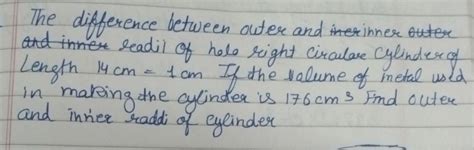 The difference between outer and iner inner outer
and inner readil of hole right Circular Cylinder of
Length 14 cm = 1 cm If the Valume of metel used
in making the cylinder is 176 cm 3 Find outer
and inner raddi of cylinder